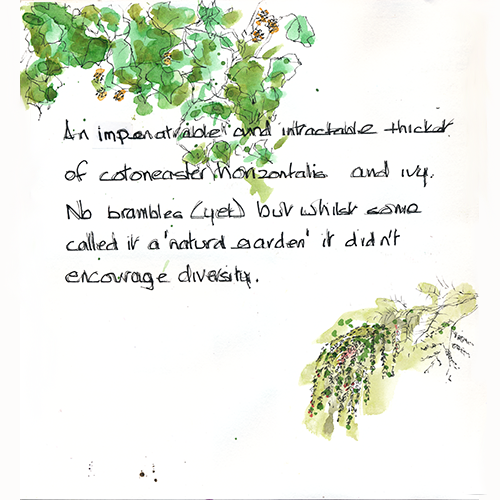 An impenatrable and intractable thicket
of cotoneaster horizontalis and ivy.
No brambles (yet) but whilst some
called it a 'natural garden' it didn't
encourage diversity.